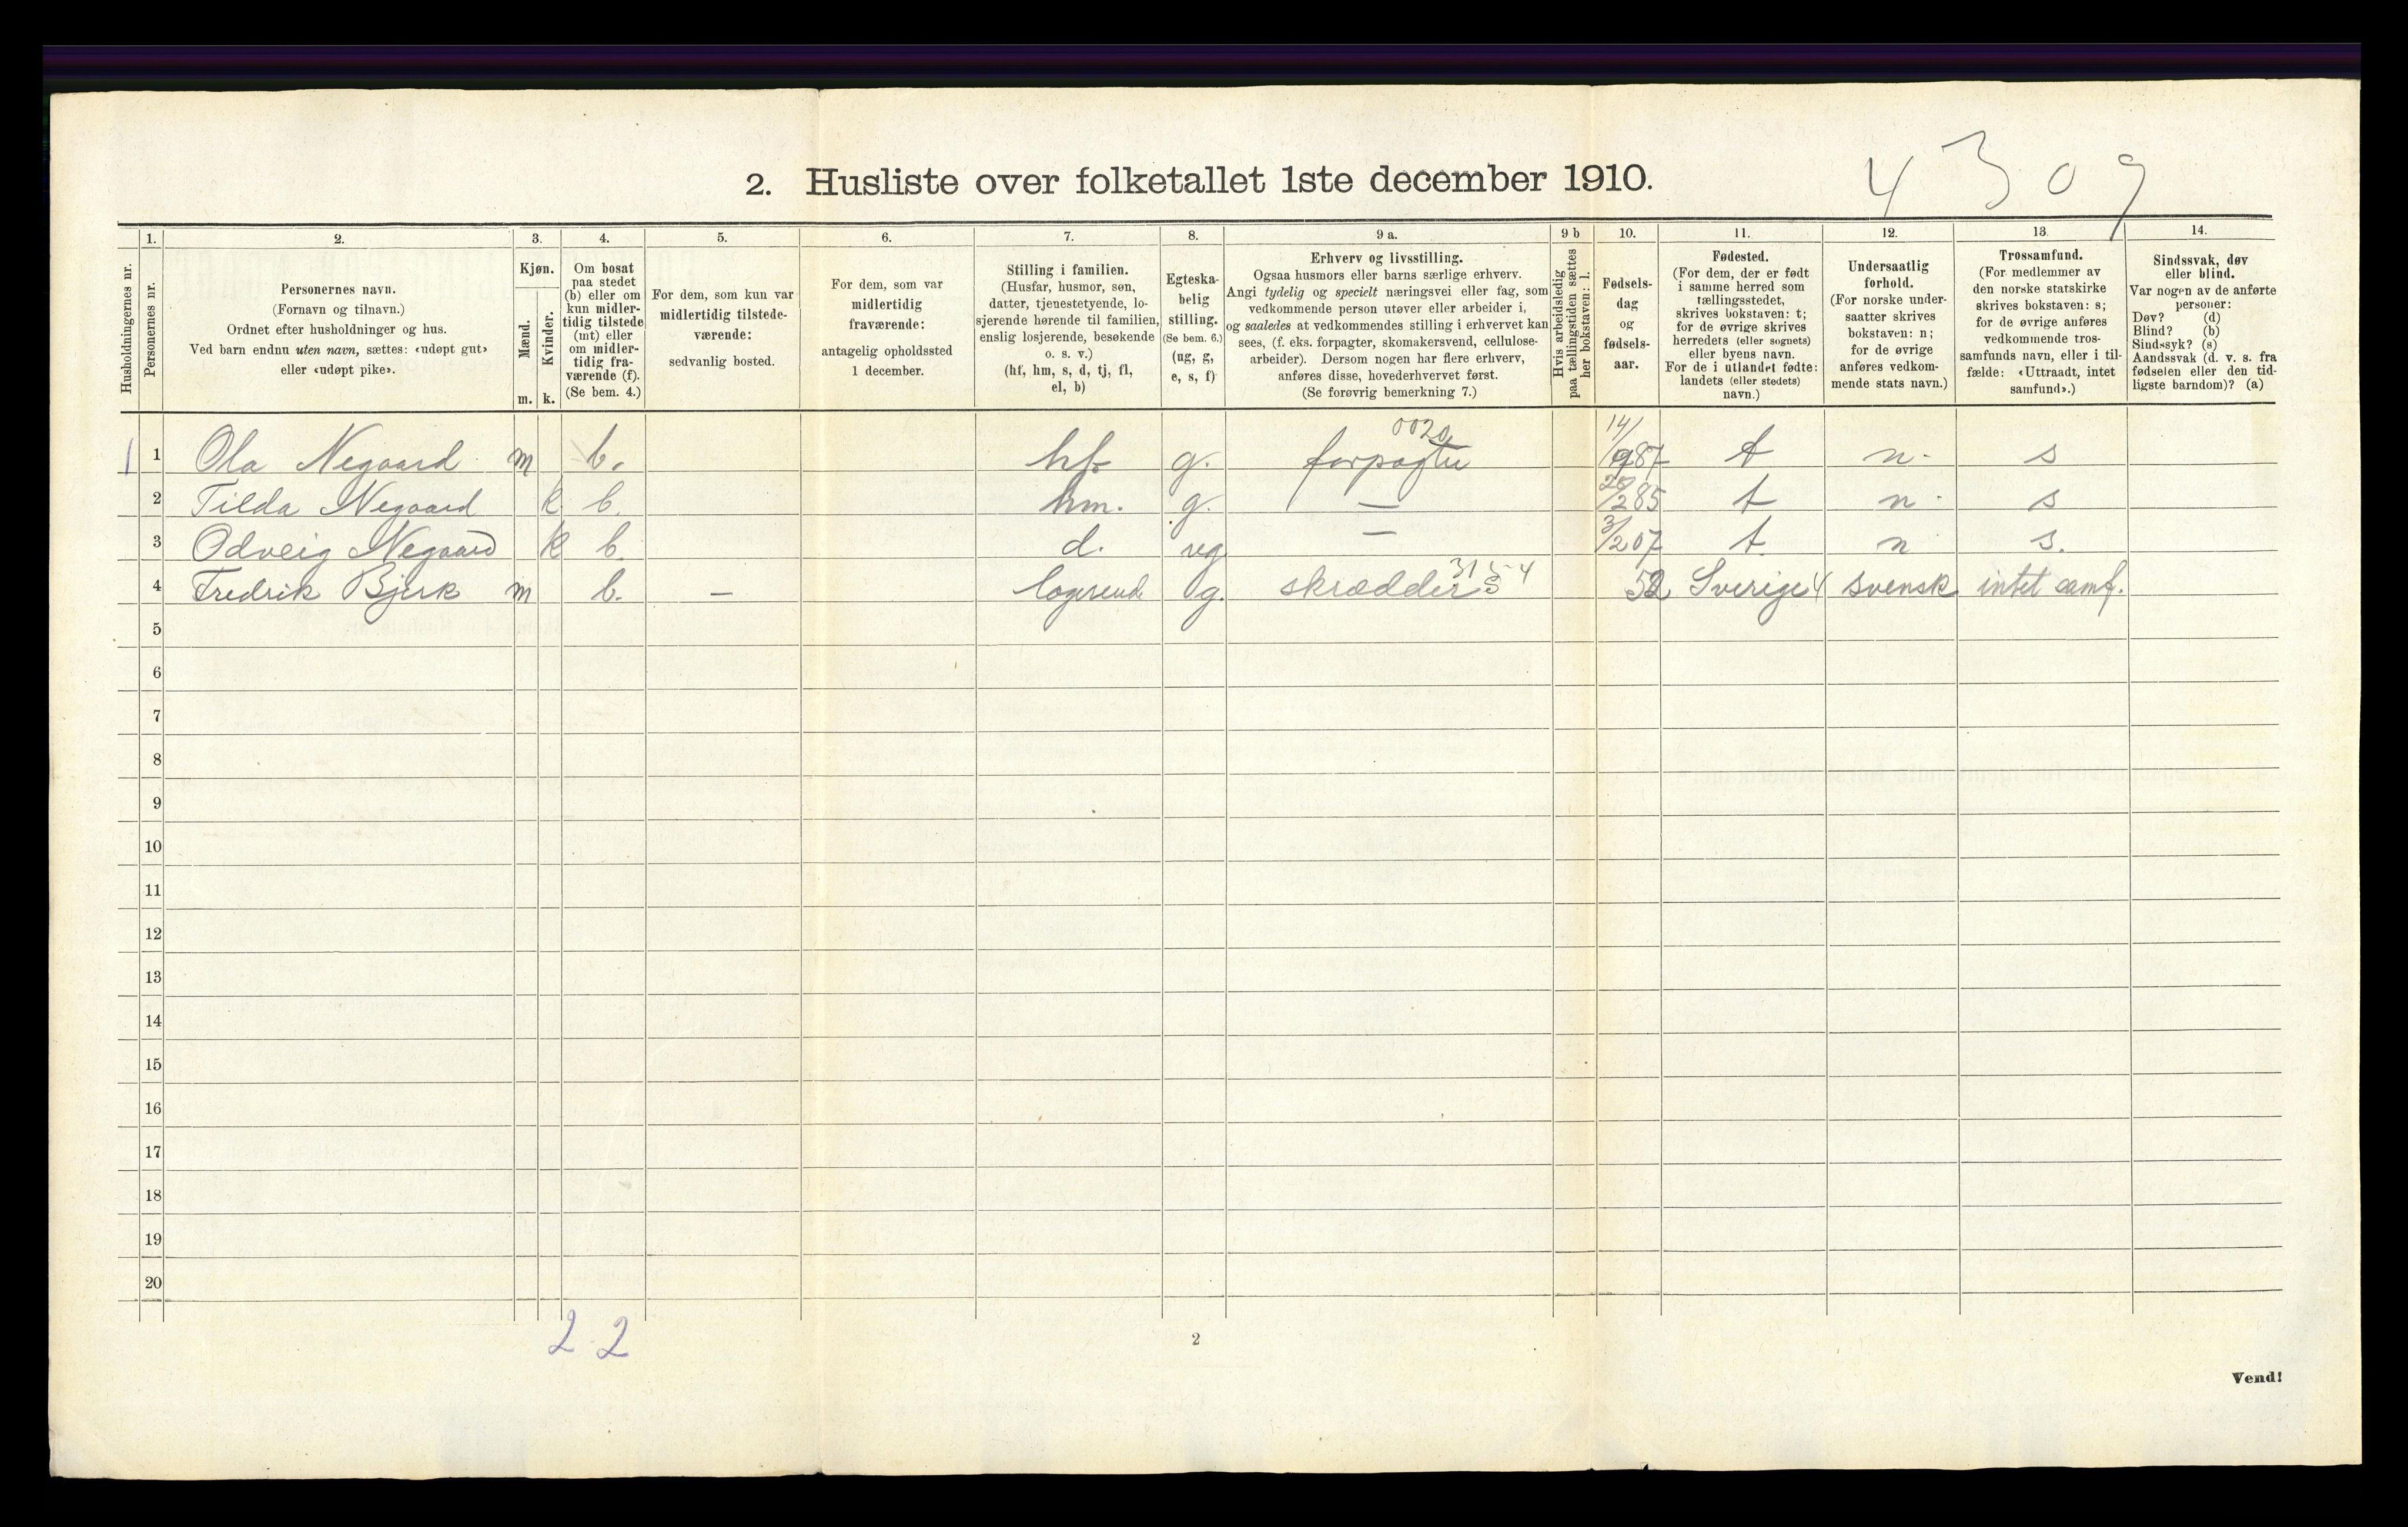 4309
2. Husliste over folketallet 1ste december 1910.
Husholdningernes nr.
1.
Personernes nr.
2.
Personernes navn.
(Fornavn og tilnavn.)
Ordnet efter husholdninger og hus.
Ved barn endnu uten navn, sættes: «udøpt gut»
eller «udøpt pike».
3.
Kjøn.
Mænd.
m.
Kvinder.
k.
4.
Om bosat
paa stedet
(b) eller om
kun midler-
tidig tilstede
(mt) eller
om midler-
tidig fra-
værende (f).
(Se bem. 4.)
5.
For dem, som kun var
midlertidig tilstede-
værende:
sedvanlig bosted.
6.
For dem, som var
midlertidig
fraværende:
antagelig opholdssted
1 december.
7.
Stilling i familien.
(Husfar, husmor, søn,
datter, tjenestetyende, lo-
sjerende hørende til familien,
enslig losjerende, besøkende
o. s. v.)
(hf, hm, s, d, tj, fl,
el, b)
8.
Egteska-
belig
stilling.
(Se bem. 6.)
(ug, g,
e, s, f)
9 a.
Erhverv og livsstilling.
Ogsaa husmors eller barns særlige erhverv.
Angi tydelig og specielt næringsvei eller fag, som
vedkommende person utøver eller arbeider i,
og saaledes at vedkommendes stilling i erhvervet kan
sees, (f. eks. forpagter, skomakersvend, cellulose-
arbeider). Dersom nogen har flere erhverv,
anføres disse, hovederhvervet først.
(Se forøvrig bemerkning 7.)
9 b
Hvis arbeidsledig
paa tællingstiden sættes
her bokstaven: l.
10.
Fødsels-
dag
og
fødsels-
aar.
11.
Fødested.
(For dem, der er født
i samme herred som
tællingsstedet,
skrives bokstaven: t;
for de øvrige skrives
herredets (eller sognets)
eller byens navn.
For de i utlandet fødte:
landets (eller stedets)
navn.)
12.
Undersaatlig
forhold.
(For norske under-
saatter skrives
bokstaven: n;
for de øvrige
anføres vedkom-
mende stats navn.)
13.
Trossamfund.
(For medlemmer av
den norske statskirke
skrives bokstaven: s;
for de øvrige anføres
vedkommende tros-
samfunds navn, eller i til-
fælde: «Uttraadt, intet
samfund».)
14.
Sindssvak, døv
eller blind.
Var nogen av de anførte
personer:
Døv? (d)
Blind? (b)
Sindssyk? (s)
Aandssvak (d. v. s. fra
fødselen eller den tid-
ligste barndom)? (a)
1 1 Ola Negaard m b. hf. g. forpagter 0020 14/9 87 t n. s
2 Tilda Negaard k b. hm. g. — 20/2 85 t n. s
3 Odveig Negaard k b. d. ug — 3/2 07 t. n s.
4 Fredrik Bjerk m b. — g. skrædder s 52 Sverige 4 svensk intet samf.
5
6
7
8
9
10
11
12
13
14
15
16
17
18
19
20
2 2
2
Vend!